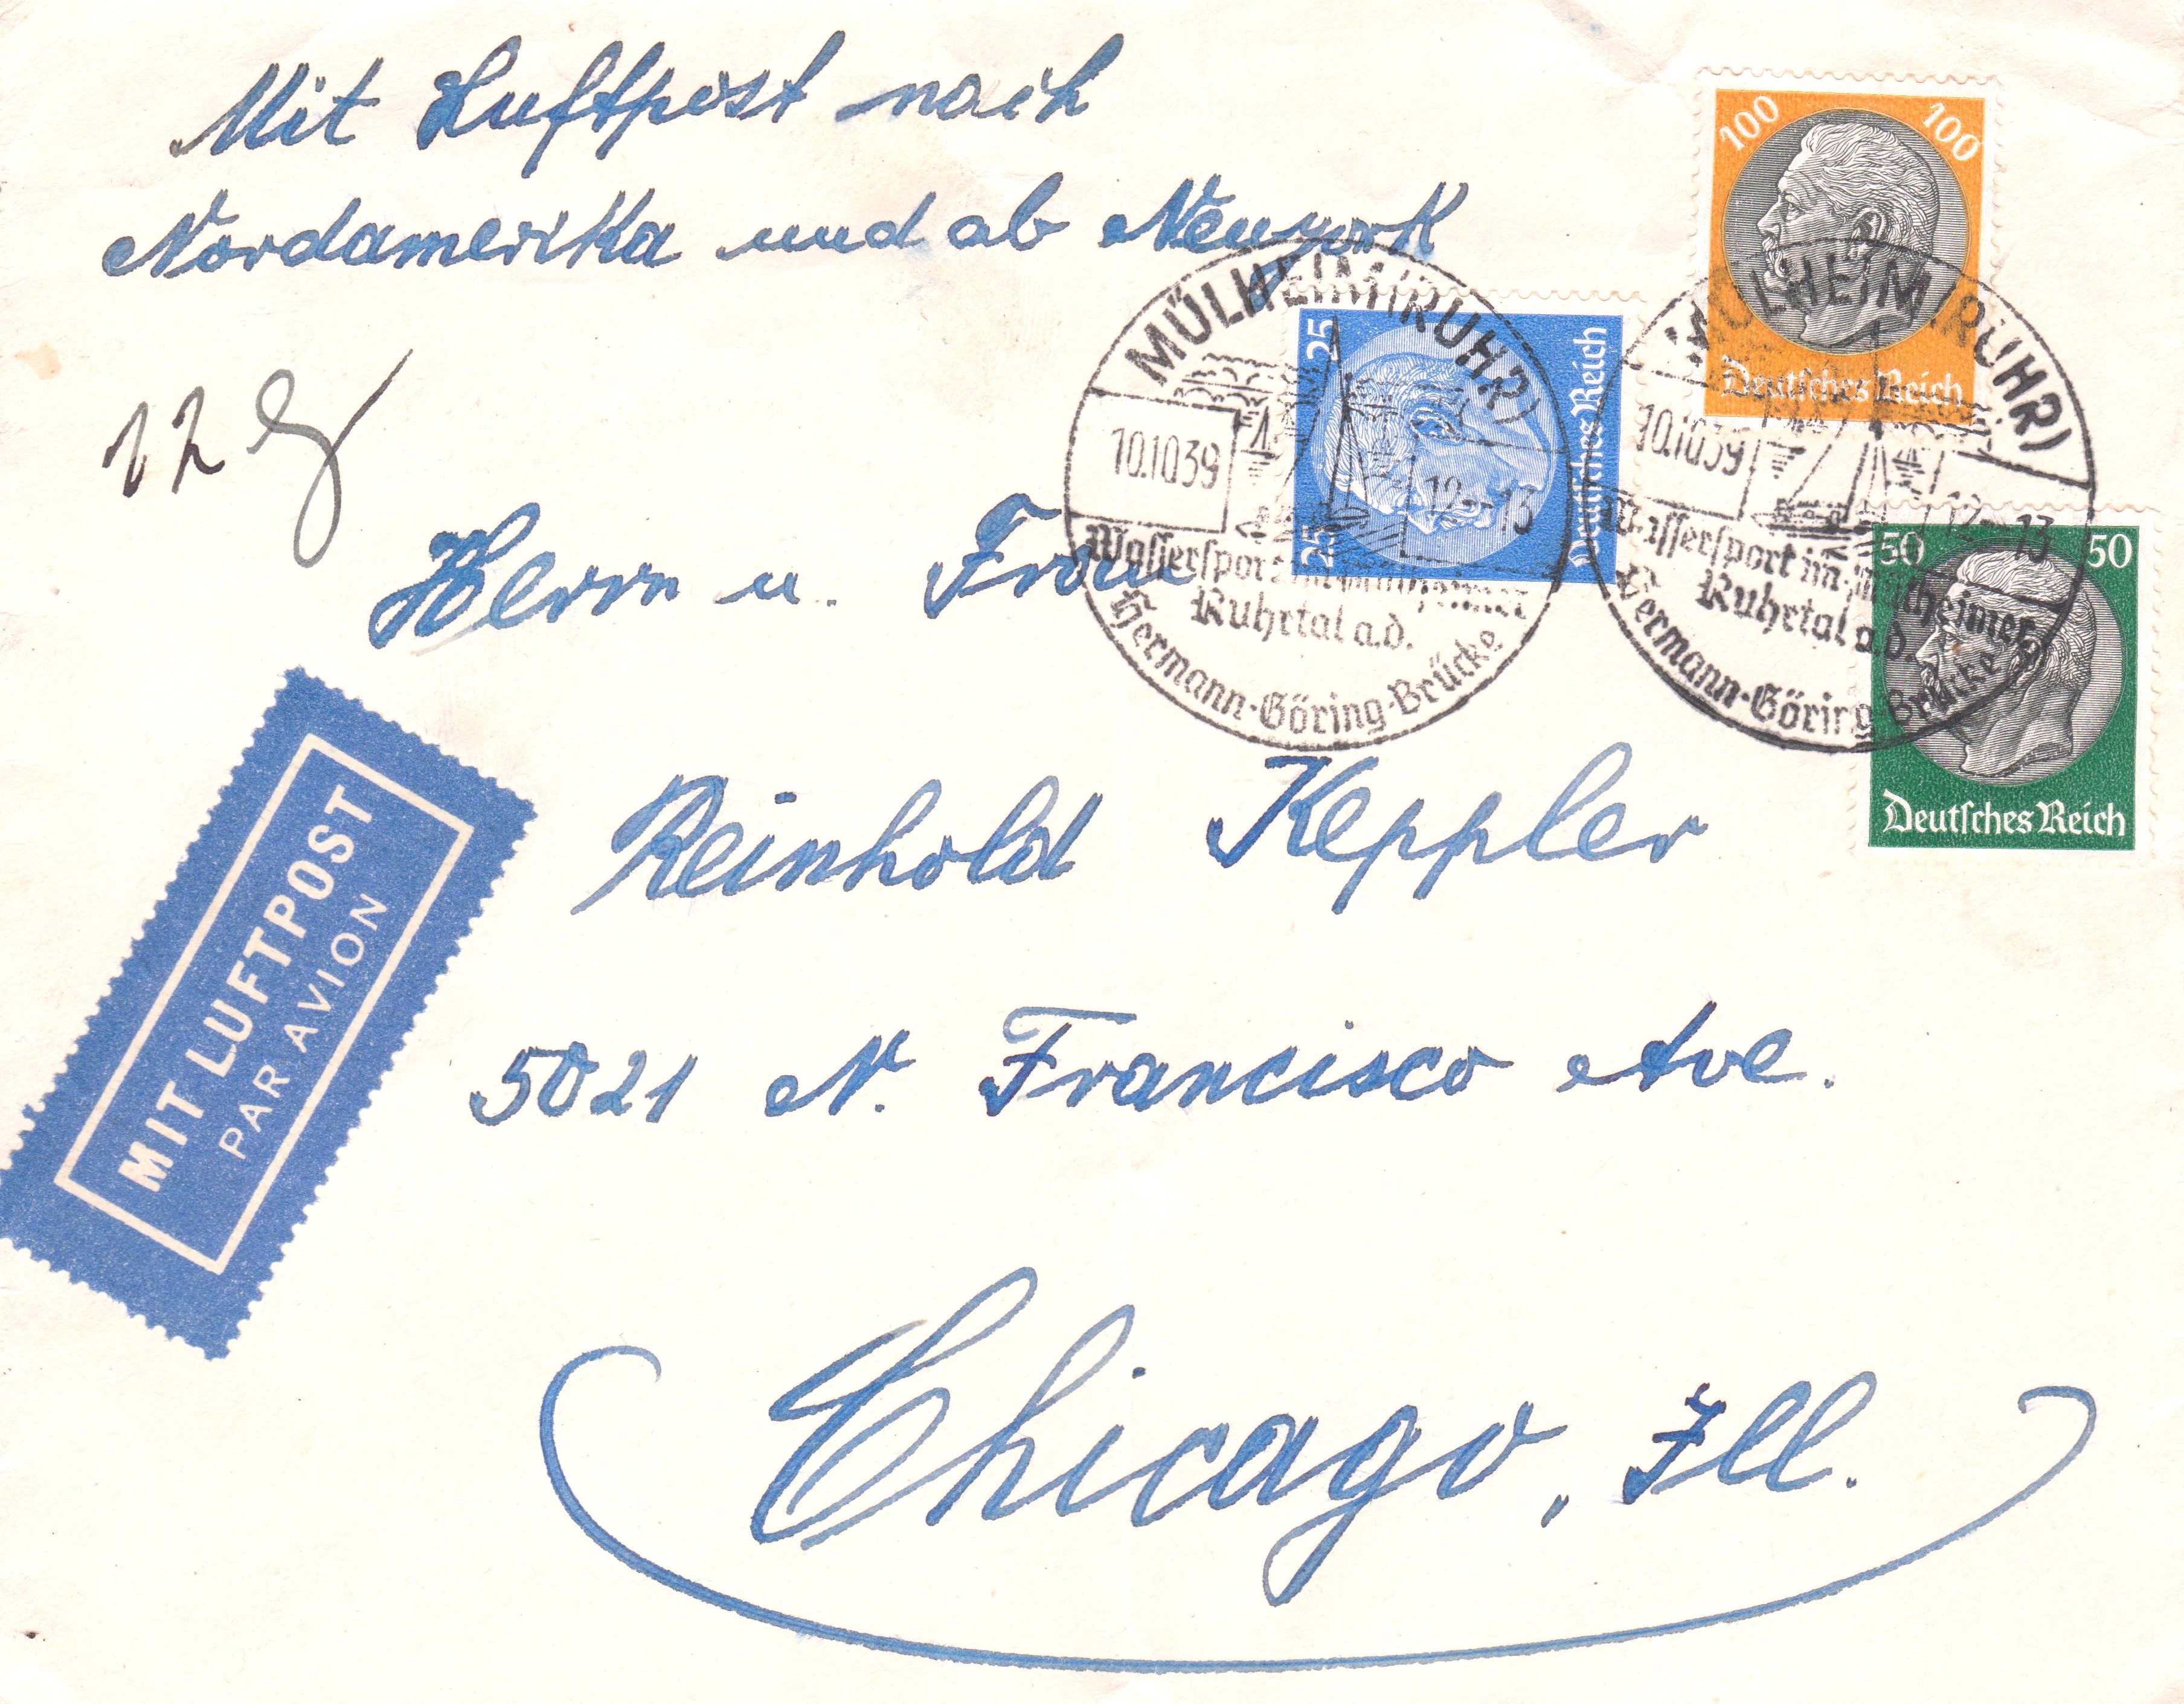 Mit Luftpost nach
Nordamerika und ab Newyork
12 g
100 100
Deutsches Reich
25 25
Deutsches Reich
50 50
Deutsches Reich
MÜLHEIM (RUHR)
10.10.39 12-13
Wassersport im Mülheimer
Ruhrtal a.d.
Hermann-Göring-Brücke
MÜLHEIM (RUHR)
10.10.39 12-13
Wassersport im Mülheimer
Ruhrtal a.d.
Hermann-Göring-Brücke
Herrn u. Frau
Reinhold Keppler
MIT LUFTPOST
PAR AVION
5021 N. Francisco Ave.
Chicago, Ill.